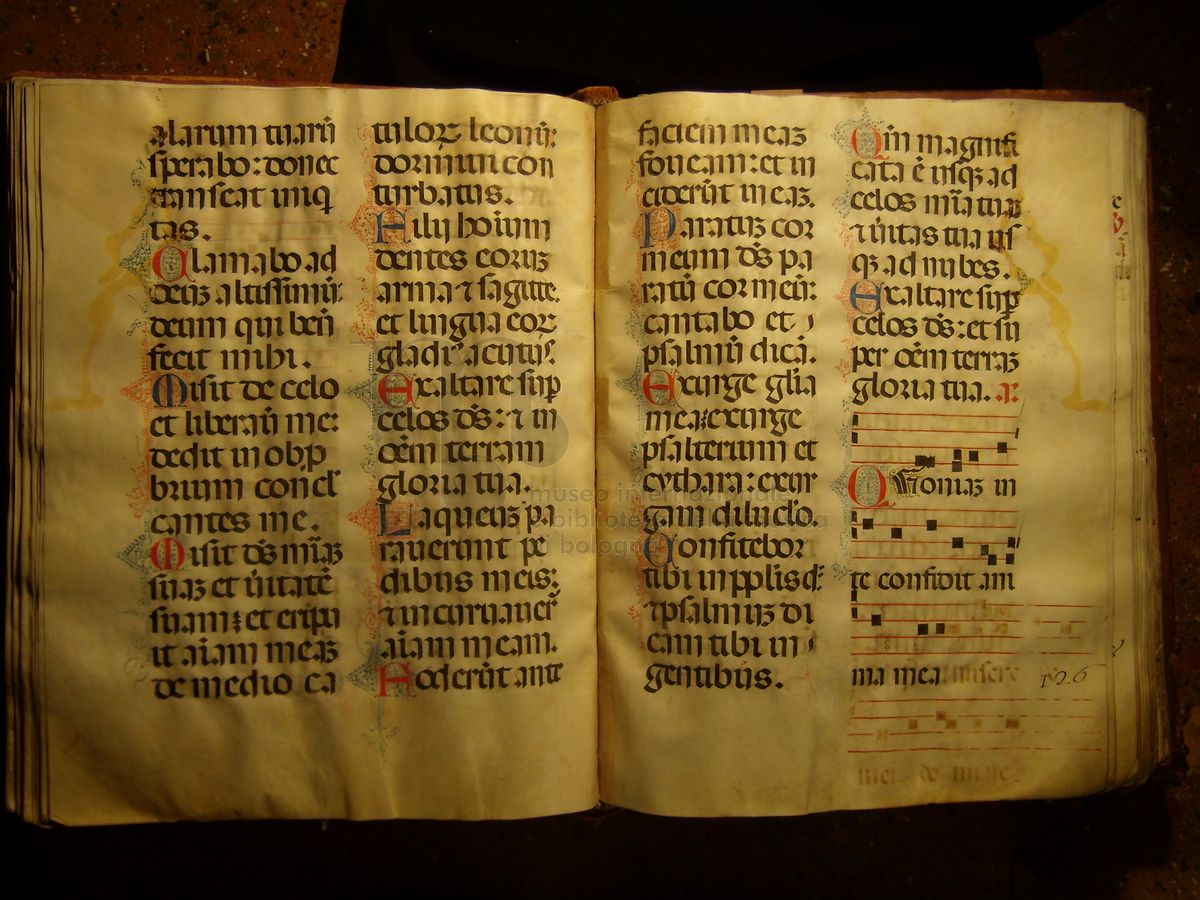 alarum tuarū
sperabo: donec
transeat iniq
tas.
Clamabo ad
deuz altissimū:
deum qui ben̄
fecit mihi.
Misit de celo
et liberaū me:
dedit in obp
brium concl
cantes me.
Misit ds mīaz
suaz et ūitatē
suam: et eripu
it aīam meaz
de medio ca
tuloꝝ leonū:
dormiui con
turbatus.
Filij hoīum
dentes eoruz
arma ⁊ sagitte.
et lingua eoꝝ
gladiꝰ acutus.
Exaltare sup
celos ds: ⁊ in
oēm terram
gloria tua.
Laqueuz pa
rauerunt pe
dibus meis:
⁊ incuruauer̄
aīam meam.
Foderūt ante
faciem meaz
foueam: et in
ciderūt in eaz.
Paratuz cor
meum ds pa
ratū cor meū:
cantabo et
psalmū dicā.
Exurge glīa
mea: exurge
psalterium et
cythara: exur
gam diluclo.
Confitebor
tibi in pplis d
⁊ psalmuz di
cam tibi in
gentibus.
Qm̄ magnifi
cata ē usqz ad
celos mīa tua
⁊ ūitas tua us
qz ad nubes.
Exaltare sup
celos ds: et su
per oēm terraz
gloria tua. a:
Quoniaz in
te confidit ani
ma mea misere
126
mei do mine.
museo internazionale
biblioteca della musica
bologna